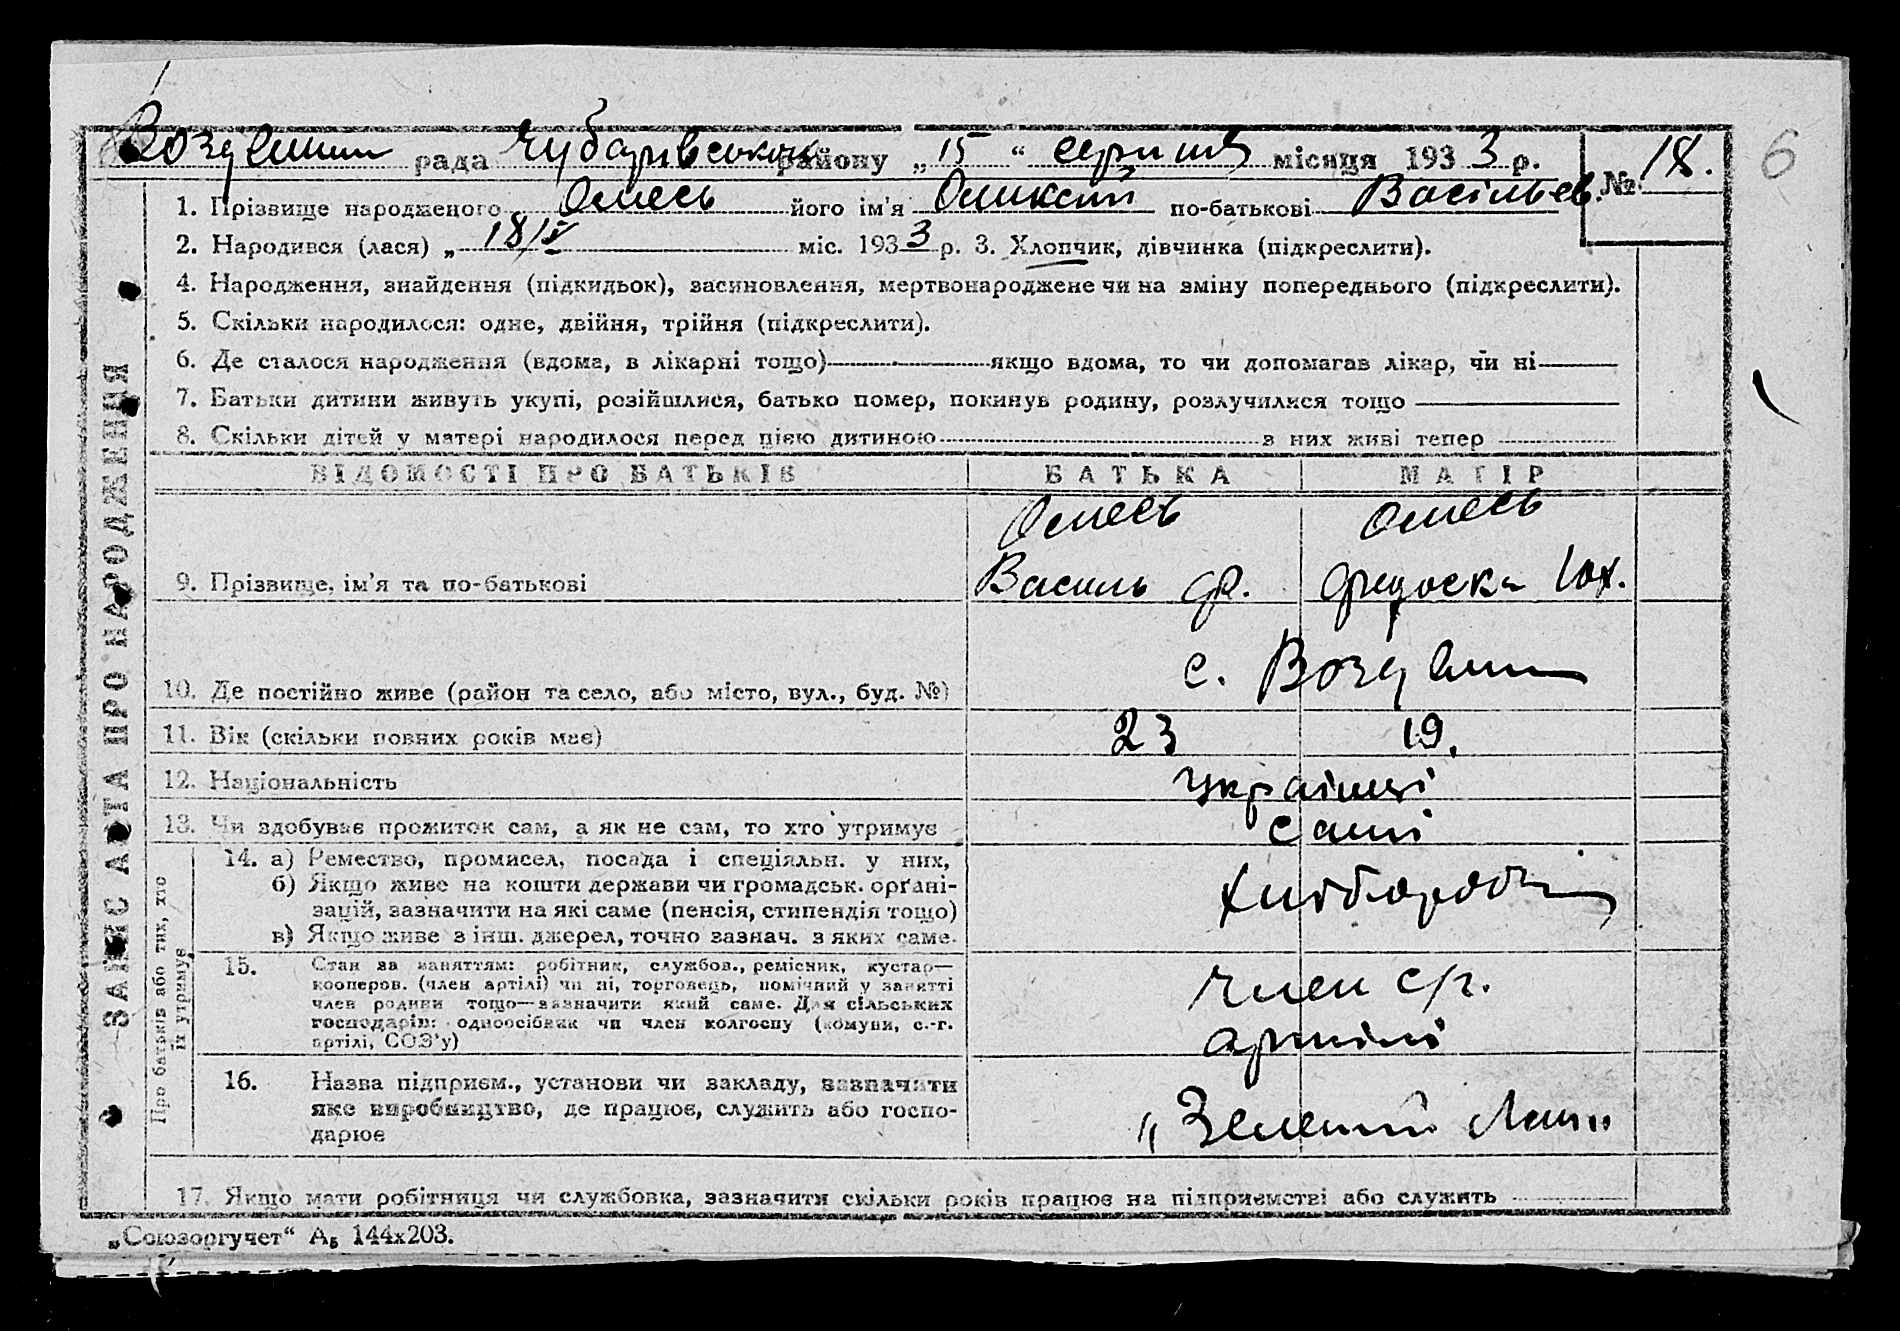 рада Чубарівського району „15“ серпня місяця 1933 р. № 18. 6
1. Прізвище народженого Олмесь його ім'я Олексій по-батькові Васільєв.
2. Народився (лася) „ 18/V міс. 1933 р. 3. Хлопчик, дівчинка (підкреслити).
4. Народження, знайдення (підкидьок), засиновлення, мертвонароджене чи на зміну попереднього (підкреслити).
5. Скільки народилося: одне, двійня, трійня (підкреслити).
6. Де сталося народження (вдома, в лікарні тощо) якщо вдома, то чи допомагав лікар, чи ні
7. Батьки дитини живуть укупі, розійшлися, батько помер, покинув родину, розлучилися тощо
8. Скільки дітей у матері народилося перед цією дитиною з них живі тепер
ВІДОМОСТІ ПРО БАТЬКІВ БАТЬКА МАТІР
9. Прізвище, ім'я та по-батькові Василь
10. Де постійно живе (район та село, або місто, вул., буд. №) с.
11. Вік (скільки повних років має) 23 19.
12. Національність українці
13. Чи здобуває прожиток сам, а як не сам, то хто утримує самі
14. а) Ремество, промисел, посада і спеціяльн. у них,
б) Якщо живе на кошти держави чи громадськ. орґані-
зацій, зазначити на які саме (пенсія, стипендія тощо)
в) Якщо живе з інш. джерел, точно зазнач. з яких саме.
хлібороби
15. Стан за заняттям: робітник, службов., ремісник, кустар—
кооперов. (член артілі) чи ні, торговець, помічний у занятті
член родини тощо—зазначити який саме. Для сільських
господарів: одноосібник чи член колгоспу (комуни, с.-г.
артілі, СОЗ'у)
член с/г.
артілі
16. Назва підприєм., установи чи закладу, зазначити
яке виробництво, де працює, служить або госпо-
дарює
„Зелений Лан"
17. Якщо мати робітниця чи службовка, зазначити скільки років працює на підприємстві або служить
ЗАПИС АКТА ПРО НАРОДЖЕННЯ
Про батьків або тих, хто
їх утримує
„Союзоргучет“ А₅ 144х203.